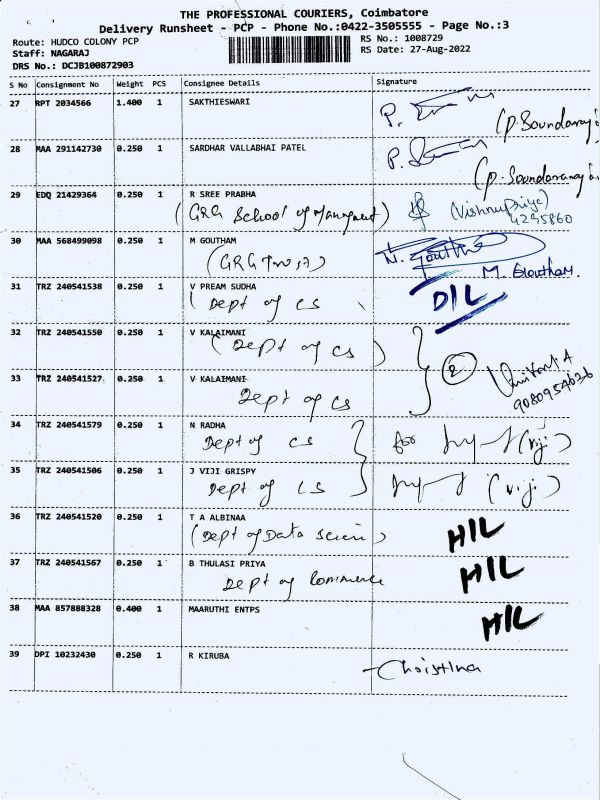 THE PROFESSIONAL COURIERS, Coimbatore
Delivery Runsheet - PCP - Phone No.:0422-3505555 - Page No.:3
Route: HUDCO COLONY PCP
Staff: NAGARAJ
DRS No.: DCJB100872903
RS No.: 1008729
RS Date: 27-Aug-2022
S No Consignment No Weight PCS Consignee Details Signature
27 RPT 2034566 1.400 1 SAKTHIESWARI
(P. Soundararaj
28 MAA 291142730 0.250 1 SARDHAR VALLABHAI PATEL
29 EDQ 21429364 0.250 1 R SREE PRABHA
(GRG School of Managment) (Vishnu Priya)
4295860
30 MAA 568499098 0.250 1 M GOUTHAM
(GRG Trust) M. Goutham.
31 TRZ 240541538 0.250 1 V PREAM SUDHA
(Dept of CS D/L
32 TRZ 240541550 0.250 1 V KALAIMANI
(Dept of CS)
33 TRZ 240541527 0.250 1 V KALAIMANI
Dept of CS 2
34 TRZ 240541579 0.250 1 N RADHA
Dept of CS for (viji)
35 TRZ 240541506 0.250 1 J VIJI GRISPY
Dept of CS (viji)
36 TRZ 240541520 0.250 1 T A ALBINAA
(Dept of Data Scien) H/L
37 TRZ 240541567 0.250 1 B THULASI PRIYA
Dept of Commerce H/L
38 MAA 857888328 0.400 1 MAARUTHI ENTPS
H/L
39 DPI 10232430 0.250 1 R KIRUBA
Christina